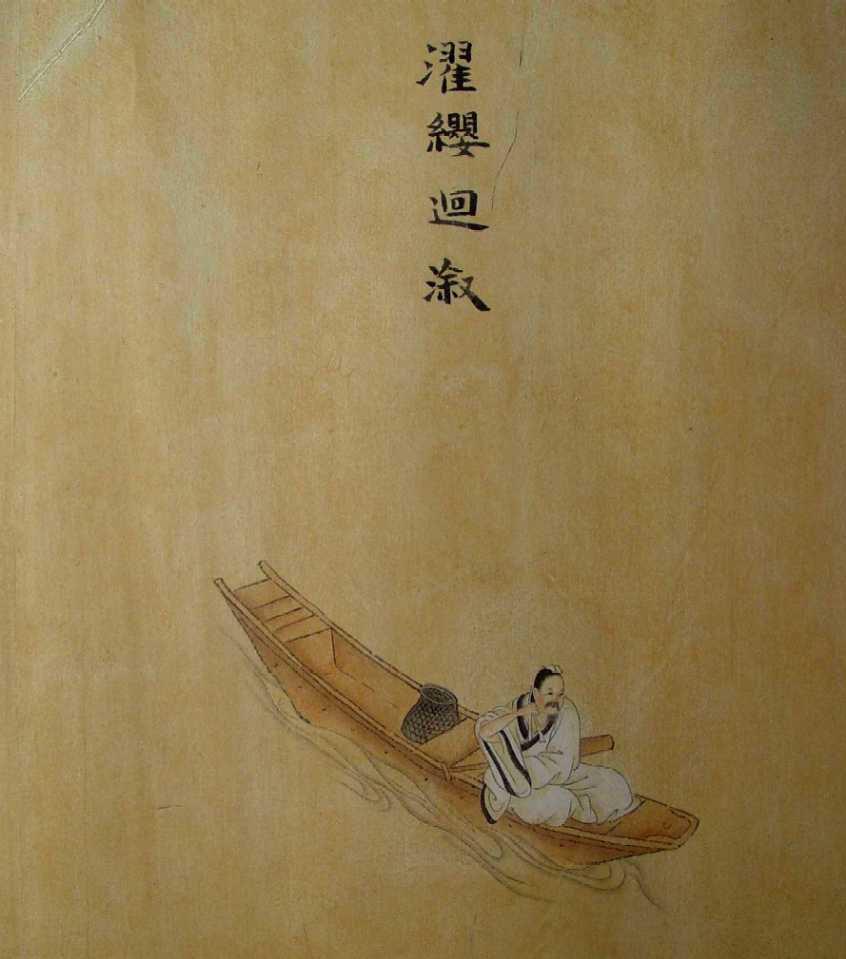 濯纓迴溆